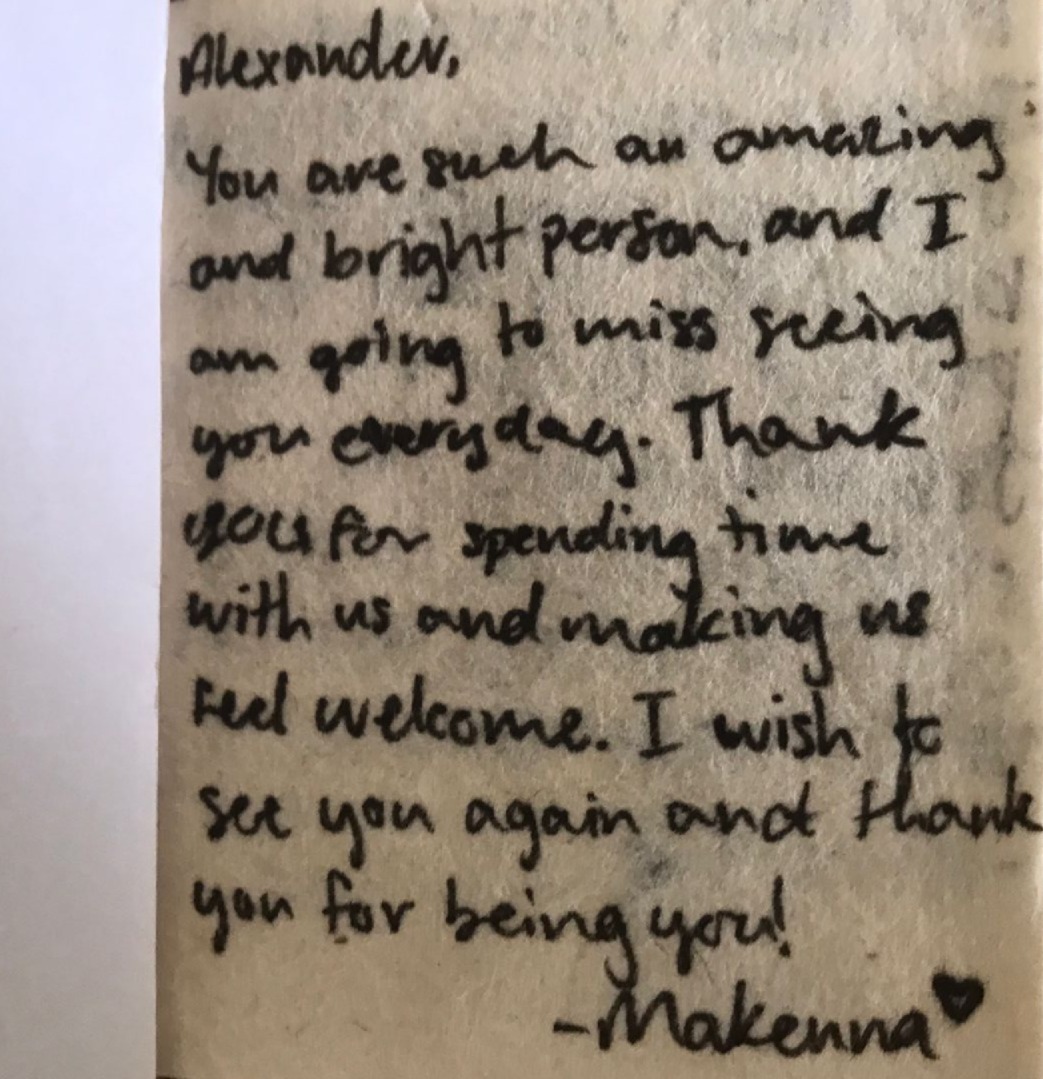 Alexander,
You are such an amazing
and bright person, and I
am going to miss seeing
you everyday. Thank
you for spending time
with us and making us
feel welcome. I wish to
see you again and thank
you for being you!
-Makenna♥